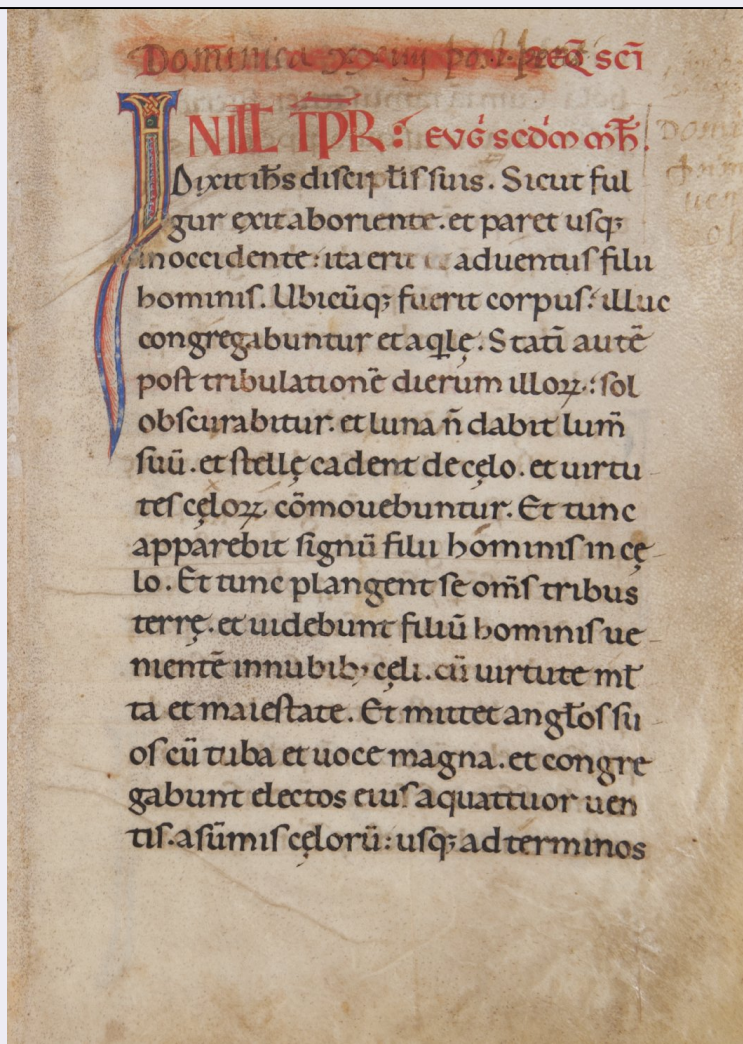 Dominica xxiiij post pent SEQ̄ SCI
IN ILL TPR: EVḠ SCDM MH̄.
Dixit ihs̄ discipłis suis. Sicut ful
gur exit ab oriente. et paret usq;
in occidente: ita erit aduentus filii
hominis. Ubicūq; fuerit corpus: illuc
congregabuntur et aqlę. Stati autē
post tribulationē dierum illoꝝ: sol
obscurabitur. et luna n̄ dabit lum̄
suū. et stellę cadent de cęlo. et uirtu
tes cęloꝝ cōmouebuntur. Et tunc
apparebit signū filii hominis in cę
lo. Et tunc plangent se om̄s tribus
terrę. et uidebunt filiū hominis ue
nientē in nubib; cęli. cū uirtute mł
ta et maiestate. Et mittet angłos su
os cū tuba et uoce magna. et congre
gabunt electos eius a quattuor uen
tis. a sūmis cęlorū: usq; ad terminos